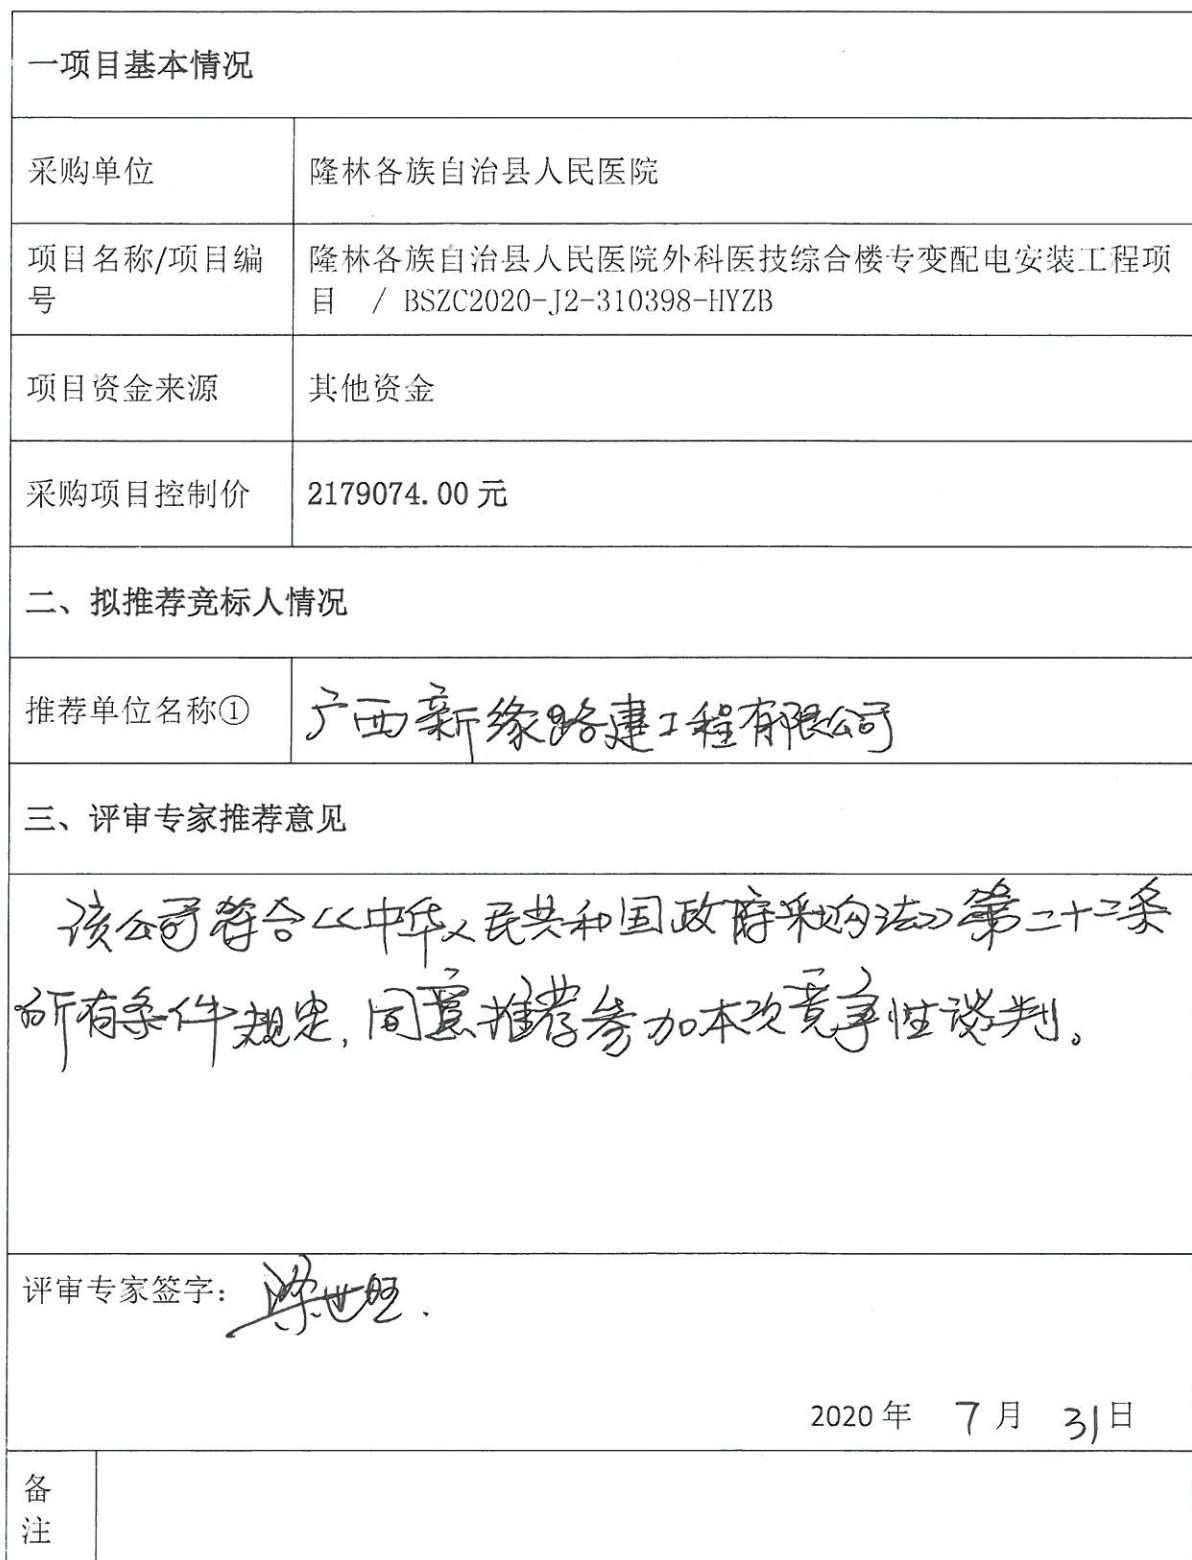 一项目基本情况
采购单位
隆林各族自治县人民医院
项目名称/项目编
号
隆林各族自治县人民医院外科医技综合楼专变配电安装工程项
目 / BSZC2020-J2-310398-HYZB
项目资金来源
其他资金
采购项目控制价
2179074.00 元
二、拟推荐竞标人情况
推荐单位名称①
广西新缘路建工程有限公司
三、评审专家推荐意见
该公司符合《中华人民共和国政府采购法》第二十二条
所有条件规定,同意推荐参加本次竞争性谈判。
评审专家签字: 梁世旺.
2020 年 7 月 31 日
备
注